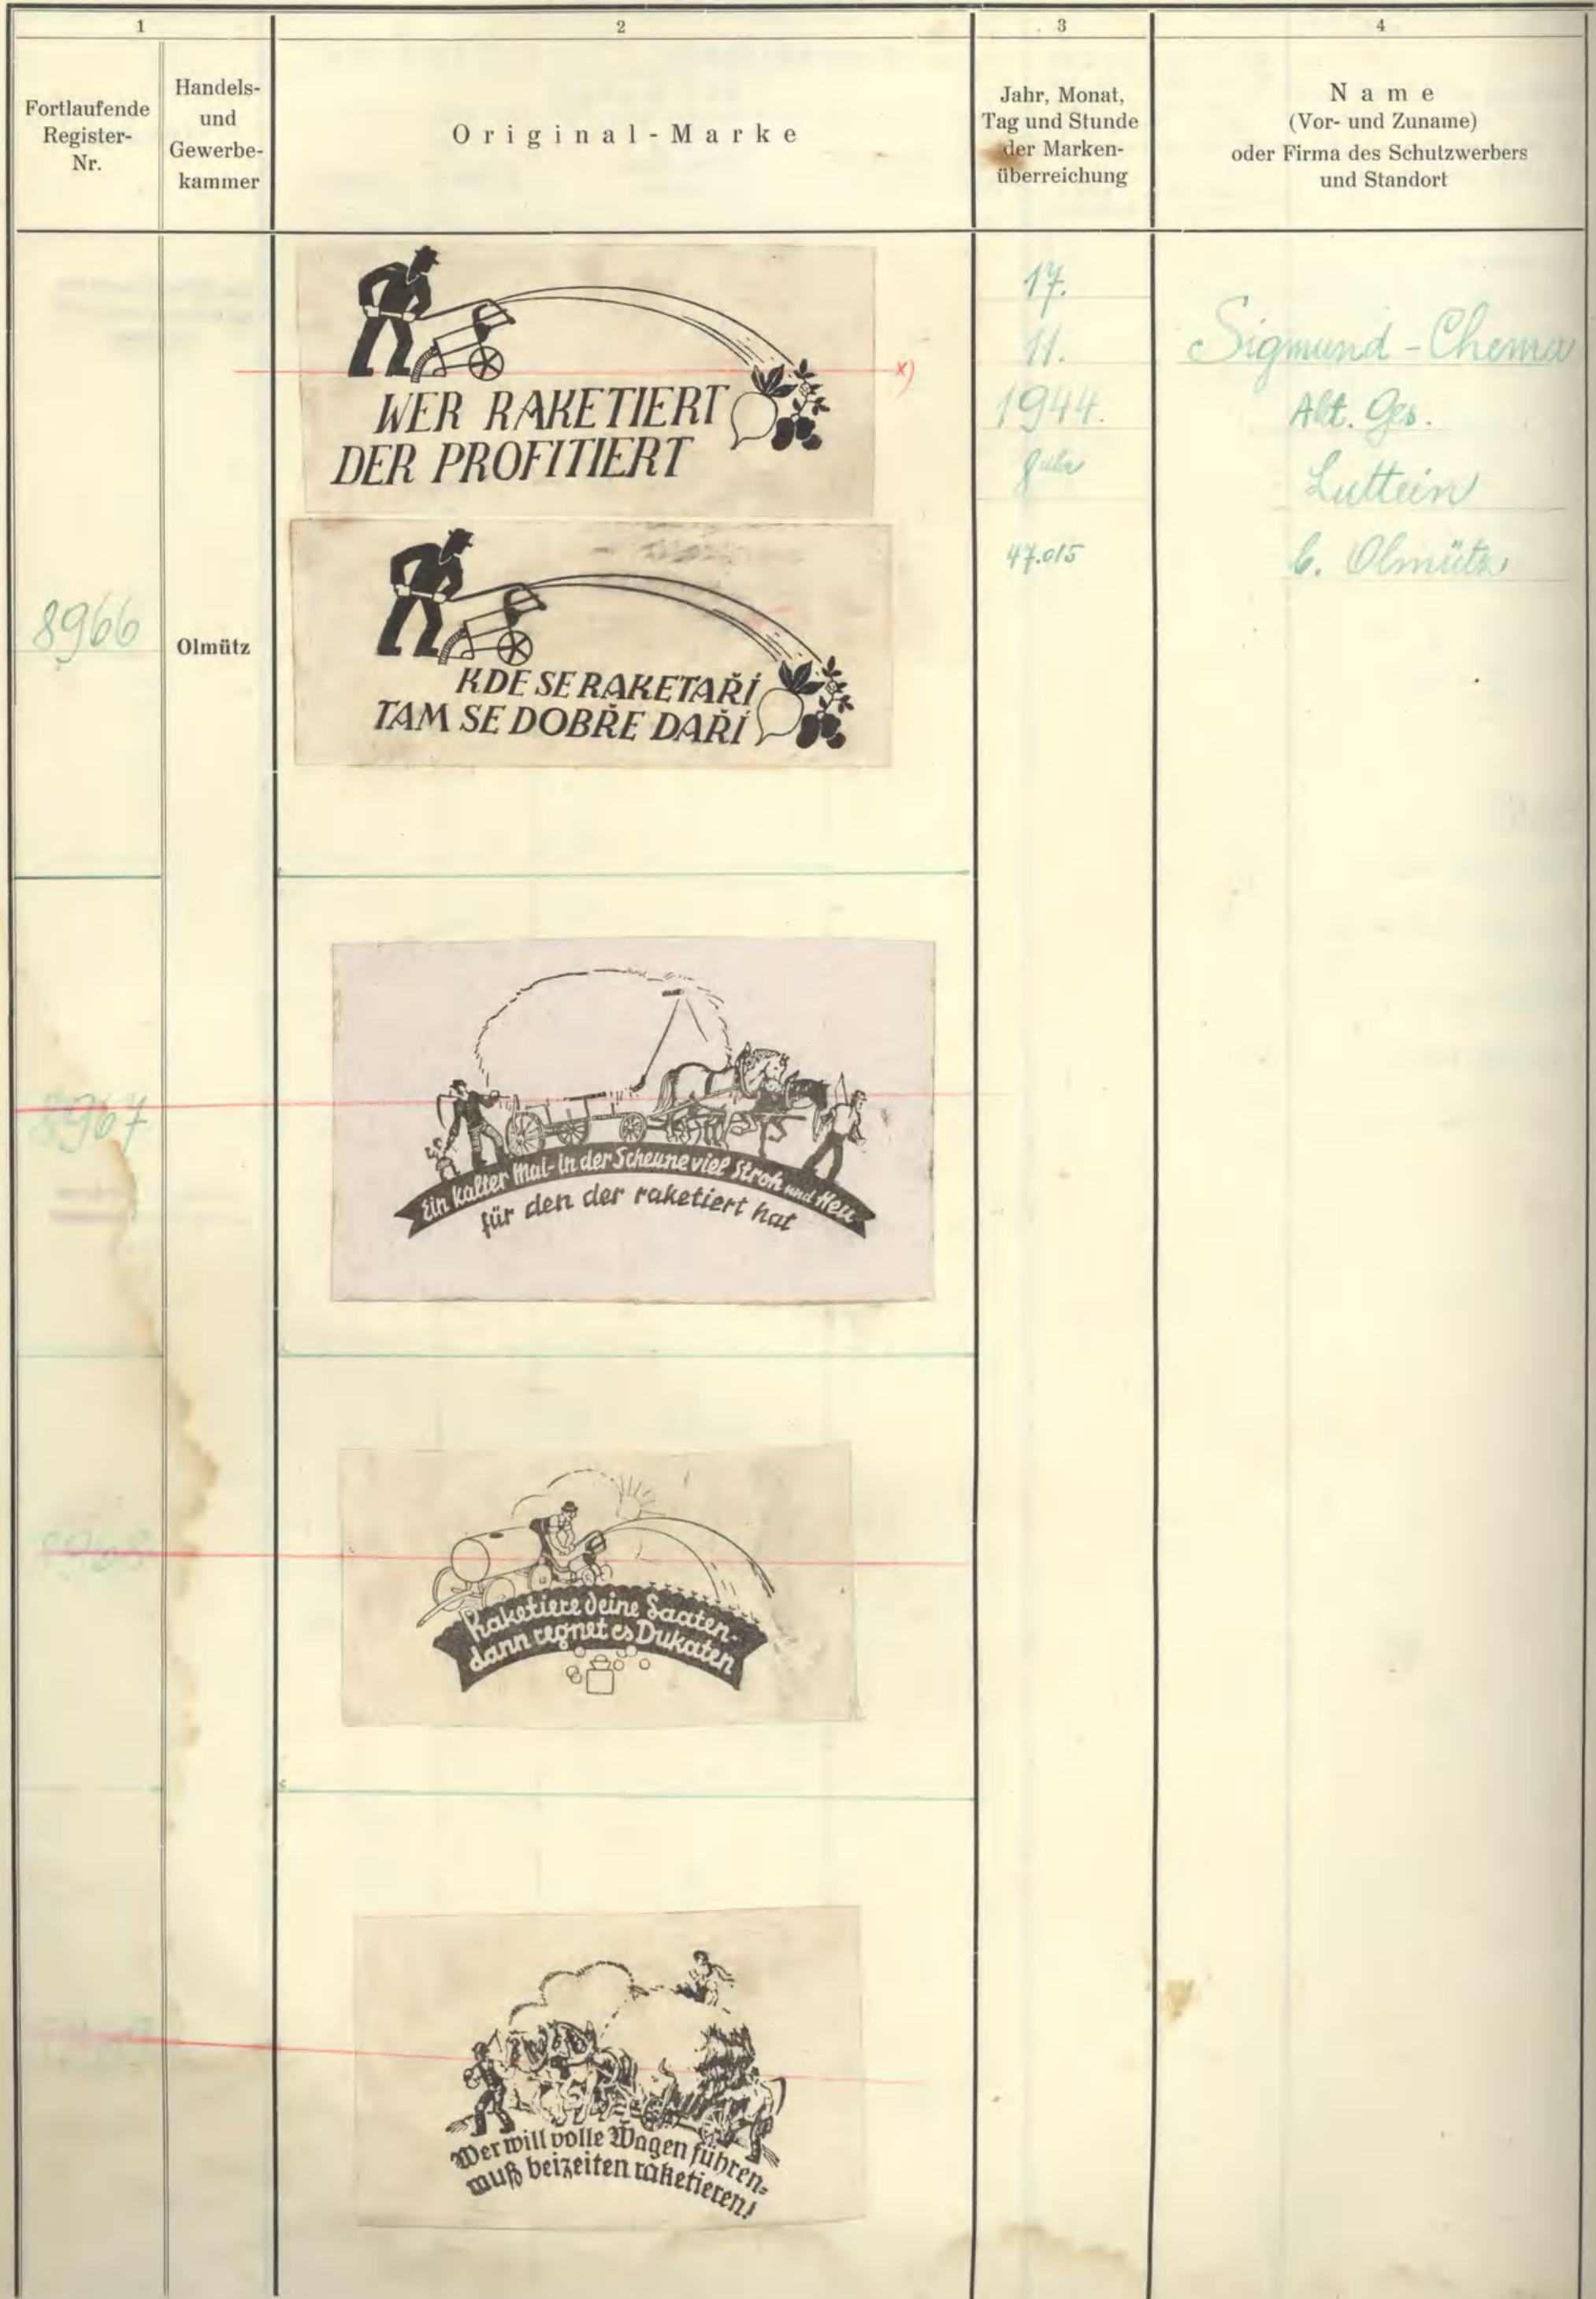 1
2
3
4
Fortlaufende
Register-
Nr.
Handels-
und
Gewerbe-
kammer
Original-Marke
Jahr, Monat,
Tag und Stunde
der Marken-
überreichung
Name
(Vor- und Zuname)
oder Firma des Schutzwerbers
und Standort
8966
Olmütz
WER RAKETIERT
DER PROFITIERT
x)
KDE SE RAKETAŘÍ
TAM SE DOBŘE DAŘÍ
17.
11.
1944.
47.015
Sigmund-Chema
Akt. Ges.
Luttein
b. Olmütz
8967
Ein kalter Mai-in der Scheune viel Stroh und Heu
für den der raketiert hat
8968
Raketiere deine Saaten-
dann regnet es Dukaten
Wer will volle Wagen führen-
muß beizeiten raketieren!